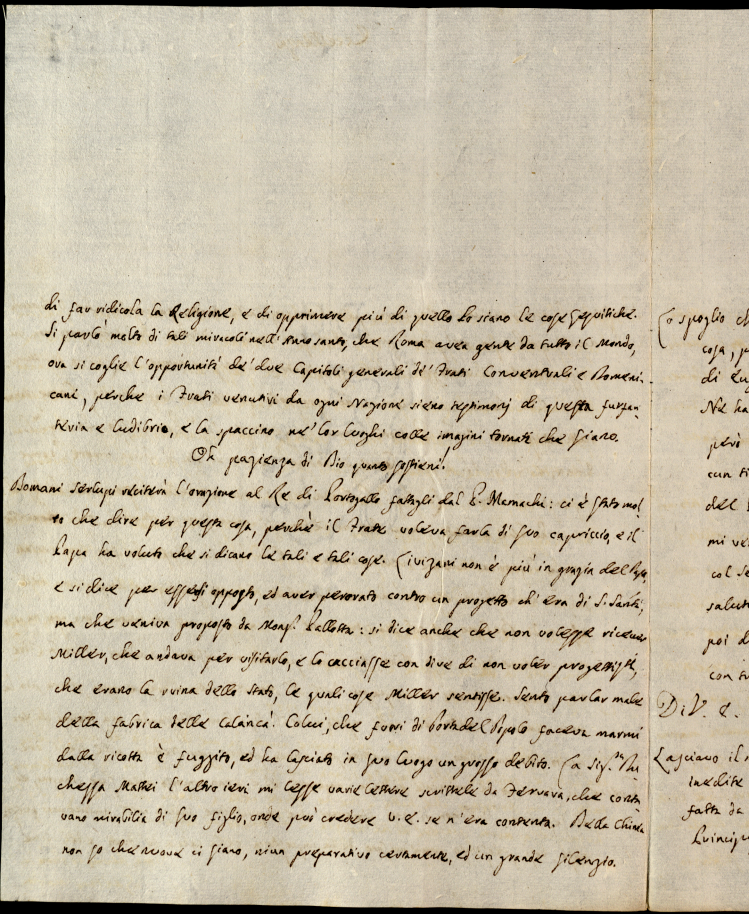 di far ridicola la Religione, e di opprimere più di quello lo siano le cose Gesuitiche.
Si parlò molto di tali miracoli nell'Anno santo, che Roma avea gente da tutto il Mondo,
ora si coglie l'opportunità de' due Capitoli generali di' Frati Conventuali e Domeni-
cani, perche i Frati venutivi da ogni Nazione sieno testimonj di questa furfan-
teria e ludibrio, e la spaccino ne' lor luoghi colle imagini tornati che siano.
Oh pazienza di Dio quanto sostieni!
Domani Serlupi reciterà l'orazione al Re di Portogallo fattagli dal P. Mamachi: ci è stato mol-
to che dire per questa cosa, perchè il Frate voleva farla di suo capriccio, e il
Papa ha voluto che si dicano le tali e tali cose. Civizani non è più in grazia del Papa,
e si dice per essersi opposto, ed aver perorato contro un progetto ch'era di S. Santità;
ma che veniva proposto da Monsr. Pallotta: si dice anche che non volesse ricevere
Miller, che andava per visitarlo, e lo cacciasse con dire di non voler progettisti,
che erano la ruina dello stato, le quali cose Miller sentisse. Sento parlar male
della fabrica delle calancà. Colui, che fuori di Porta del Popolo faceva marmi
dalla ricotta è fuggito, ed ha lasciato in suo luogo un grosso debito. La Sigra. Du-
chessa Mattei l'altro ieri mi lesse varie lettere scrittele da Ferrara, che conta-
vano mirabilia di suo figlio, onde può credere V. E. se n'era contenta. Della China
non so che nuove ci siano, niun preparativo certamente, ed un grande silenzio.
Lo spoglio
cosa,
di
Ne ha
però
con
del
mi
col
salut
poi d
con
Di V. E.
Lasciano il
inedite
fatta da
Princip